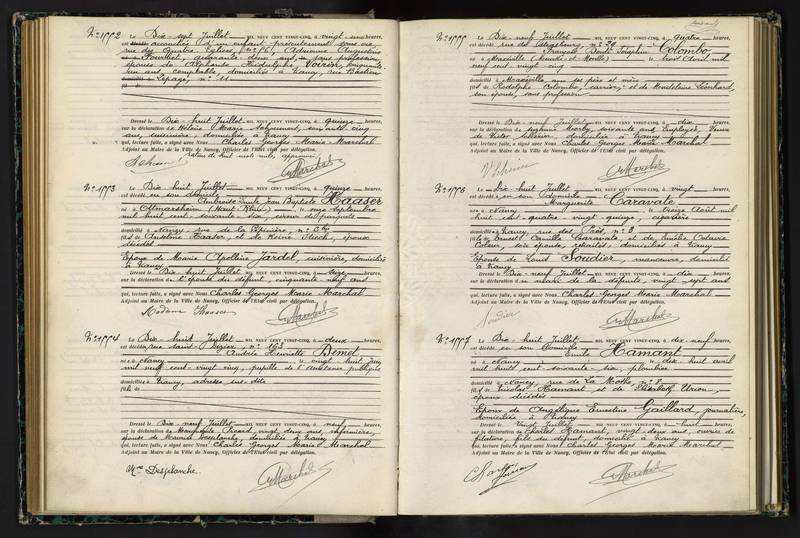 N° 1772 Le Dix-sept Juillet MIL NEUF CENT VINGT-CINQ, à vingt-une heures,
est accouchée d'un enfant présentement sans vie,
rue des Quatre Églises, n° Adrienne Augustine
Fourlhet, quarante-deux ans, sans profession,
épouse de Alphonse Voirin, cinquante-
un ans, comptable, domiciliés à Nancy, rue Bastien
Lepage, n° 11
Dressé le Dix-huit Juillet MIL NEUF CENT VINGT-CINQ, à quinze heures,
sur la déclaration de Héloïse Marie soixante cinq
ans, domiciliée à Nancy
qui, lecture faite, a signé avec Nous, Charles Georges Marie Marchal
Adjoint au Maire de la Ville de Nancy, Officier de l'Etat civil par délégation.
Marchal
N° 1773 Le Dix-huit Juillet MIL NEUF CENT VINGT-CINQ, à quinze heures,
est décédé en son domicile
Ambroise Emile Jean Baptiste Haaser
né à Ottmarsheim (Haut-Rhin) le onze septembre
mil huit cent soixante-dix, cireur de parquets
domicilié à Nancy, rue de la Pépinière, n° 6
fils de Anselme Haaser, et de Reine époux
décédés
Epoux de Marie Apolline Jardel, cuisinière, domiciliée
à Nancy
Dressé le Dix-huit Juillet MIL NEUF CENT VINGT-CINQ, à seize heures,
sur la déclaration de l'épouse du défunt, cinquante-neuf ans
qui, lecture faite, a signé avec Nous, Charles Georges Marie Marchal
Adjoint au Maire de la Ville de Nancy, Officier de l'Etat civil par délégation.
Madame Marchal
N° 1774 Le Dix-huit Juillet MIL NEUF CENT VINGT-CINQ, à deux heures,
est décédée rue Saint-Dizier n° 163
Andrée Henriette Bemel
née à Nancy le vingt-huit Juin
mil neuf cent-vingt-cinq, pupille de l'Assistance publique
domiciliée à Nancy, adresse sus-dite
fille de
Dressé le Dix-neuf Juillet MIL NEUF CENT VINGT-CINQ, à neuf heures,
sur la déclaration de Picard, vingt-deux ans, infirmière,
épouse de Maurice Desplanche, domiciliée à Nancy
qui, lecture faite, a signé avec Nous, Charles Georges Marie Marchal
Adjoint au Maire de la Ville de Nancy, Officier de l'Etat civil par délégation.
Me Desplanche Marchal
N° 1775 Le Dix-neuf Juillet MIL NEUF CENT VINGT-CINQ, à quatre heures,
est décédé rue de Strasbourg, n° 29
François Colombo
né à Maxéville (Meurthe et Moselle) le trois Avril mil
neuf cent vingt-cinq
domicilié à Maxéville, avec ses père et mère
fils de Rodolphe Colombo, carrier, et de Madeleine Leonhard,
son épouse, sans profession
Dressé le Dix-neuf Juillet MIL NEUF CENT VINGT-CINQ, à dix heures,
sur la déclaration de Eugénie soixante ans, Employée, Veuve
de Victor domiciliée à Nancy
qui, lecture faite, a signé avec Nous, Charles Georges Marie Marchal
Adjoint au Maire de la Ville de Nancy, Officier de l'Etat civil par délégation.
Marchal
N° 1776 Le Dix-huit Juillet MIL NEUF CENT VINGT-CINQ, à vingt heures,
est décédée en son domicile
Marguerite Caravale
née à Nancy le treize Août mil
huit cent quatre-vingt-quinze, cigarière
domiciliée à Nancy, rue des n° 9
fille de Ernest Camille Caravale, et de Amélie Octavie
Coleur, son épouse, domiciliés à Nancy
Epouse de Louis Soudier, manœuvre, domicilié
à Nancy
Dressé le Dix-neuf Juillet MIL NEUF CENT VINGT-CINQ, à dix heures,
sur la déclaration du mari de la défunte, vingt-sept ans
qui, lecture faite, a signé avec Nous, Charles Georges Marie Marchal
Adjoint au Maire de la Ville de Nancy, Officier de l'Etat civil par délégation.
Soudier Marchal
N° 1777 Le Dix-huit Juillet MIL NEUF CENT VINGT-CINQ, à dix-neuf heures,
est décédé en son Domicile
Emile Hamant
né à Nancy le dix-huit avril
mil huit cent soixante-dix, plombier
domicilié à Nancy rue de La Mothe n° 2
fils de Nicolas Hamant et de Elisabeth Union,
époux décédés
Epoux de Angélique Ernestine Gaillard, journalière,
domiciliée à Nancy
Dressé le Vingt Juillet MIL NEUF CENT VINGT-CINQ, à huit heures,
sur la déclaration de Charles Hamant, vingt-deux ans, ouvrier de
filature, fils du défunt, domicilié à Nancy
qui, lecture faite, a signé avec Nous, Charles Georges Marie Marchal
Adjoint au Maire de la Ville de Nancy, Officier de l'Etat civil par délégation.
Marchal